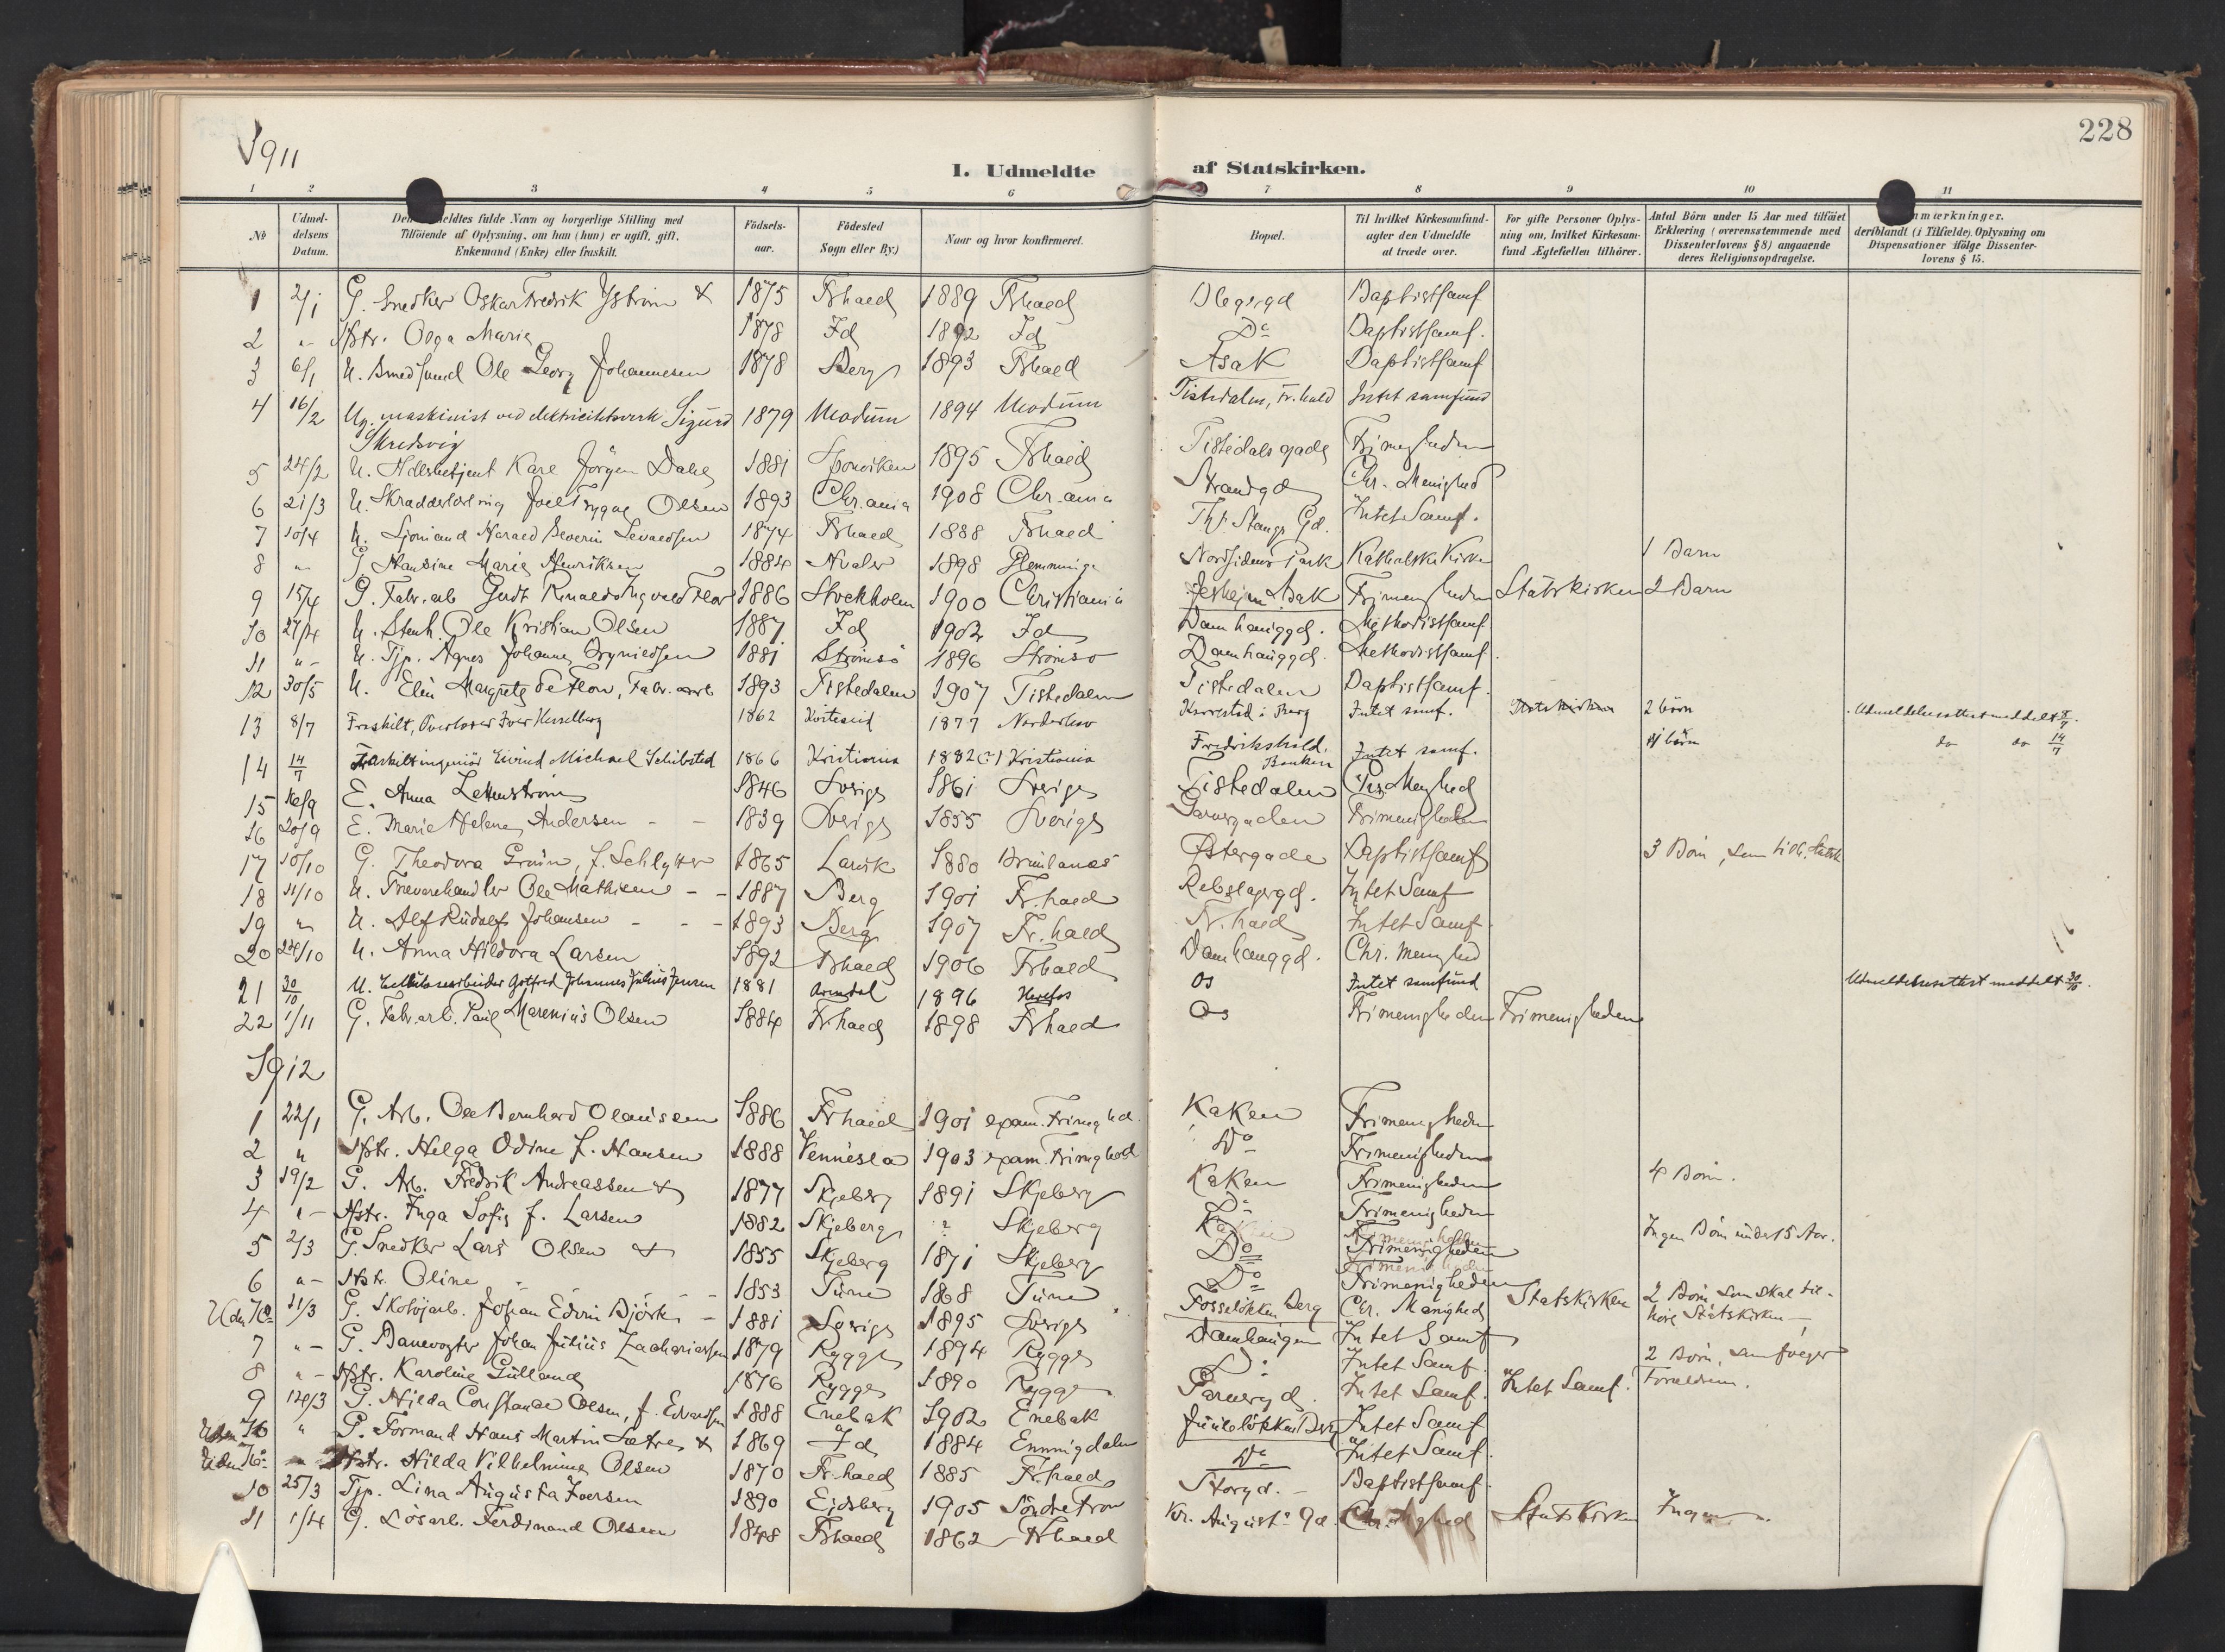 228
1911
I. Udmeldte af Statskirken.
1 2 3 4 5 6 7 8 9 10 11
No
Udmeldelsens Datum.
Den meldtes fulde Navn og borgerlige Stilling med Tilföiende af Oplysning, om han (hun) er ugift, gift, Enkemand (Enke) eller fraskilt.
Födselsaar.
Födested Sogn eller By.)
Naar og hvor konfirmeret.
Bopæl.
Til hvilket Kirkesamfund agter den Udmeldte at træde over.
For gifte Personer Oplysning om, hvilket Kirkesamfund Ægtefællen tilhörer.
Antal Börn under 15 Aar med tilföiet Erklæring (overensstemmende med Dissenterlovens § 8) angaaende deres Religionsopdragelse.
nmærkninger, deriblandt (i Tilfælde) Oplysning om Dispensationer ifölge Dissenterlovens § 15.
1 2/1 G. Snedker Oskar Fredrik & 1875 Frhald 1889 Frhald Baptistsamf
2 " Hstr. Olga Marie 1878 Id 1892 Id Do Baptistsamf.
3 6/1 U. Ole Georg Johannesen 1878 Berg 1893 Frhald Asak Baptistsamf
4 16/2 Ug. maskinist ved elektricitetsverk Sigurd Skredsvig 1879 Modum 1894 Modum Tistedalen, Fr.hald Intet samfund
5 24/2 U. Karl Jörgen Dahl 1881 Sponviken 1895 Frhald Tistedals gade Frimenigheden
6 21/3 U. Skrædderlærling Joel Trygve Olsen 1893 Chr.ania 1908 Chr.ania Strandgd Chr. Menighed
7 10/4 U. Sjömand Harald Severin 1874 Frhald 1888 Frhald Stangs Gd. Intet Samf.
8 " G. Hansine Marie Henriksen 1884 Hvaler 1898 Glemminge Nordsidens Park Katholske Kirke 1 Barn
9 15/4 G. Fabr.arb Ingvald 1886 Stockholm 1900 Christiania Asak Frimenigheden Statskirken 2 Barn
10 27/4 U. Stenh. Ole Kristian Olsen 1887 Id 1902 Id Damhauggd. Methodistsamf
11 " U. Tjp. Agnes Johanne 1881 Strömsö 1896 Strömsö Damhauggd. Methodistsamf.
12 30/5 U. Elin Margrete de Flon, Fabr. arb 1893 Tistedalen 1907 Tistedalen Tistedalen Baptistsamf.
13 8/7 Fraskilt, Iver Hesselberg 1862 1877 i Berg Intet samf. Statskirken 2 börn Udmeldelsesattest meddelt
14 14/7 Fraskilt ingeniör Eivind Michael Schibsted 1866 Kristiania 1882 (?) Kristiania Fredrikshald. Banken Intet samf. börn do do 14/7
15 E. Anna 1846 Sverige 1861 Sverige Tistedalen Chr. Menighed
16 20/9 E. Marie Helene Andersen 1839 Sverige 1855 Sverige Garvergaden Frimenigheden
17 10/10 G. Theodora Gruin, f. Schlytter 1865 Larvik 1880 Brunlanæs Østergade Baptistsamf 3 Börn, som
18 11/10 U. Trævarehandler Ole Mathisen 1887 Berg 1901 Fr.hald Rebslagergd. Intet Samf
19 " U. Alf Rudolf Johansen 1893 Berg 1907 Fr.hald Fr.hald Intet Samf.
20 24/10 U. Anna Hildora Larsen 1892 Frhald 1906 Frhald Damhauggd. Chr. Menighed
21 30/10 U. Gotfred Johannes Julius Jensen 1881 Arendal 1896 Herefos Os Intet samfund Udmeldelsesattest meddelt 30/10.
22 1/11 G. Fabr.arb. Paul Marenius Olsen 1884 Frhald 1898 Frhald Os Frimenigheden Frimenigheden
1912
1 22/1 G. Arb. Ole Bernhard Olaussen 1886 Frhald 1901 exam. Frimeghed. Kaken Frimenigheden
2 " Hstr. Helga Odine f. Hansen 1888 Vennesla 1903 exam. Frimeghed Do Frimenigheden
3 19/2 G. Arb. Fredrik Andreassen & 1877 Skjeberg 1891 Skjeberg Kaken Frimenigheden 4 Börn.
4 " Hstr. Inga Sofie f. Larsen 1882 Skjeberg ? Skjeberg Do Frimenigheden
5 2/3 G. Snedker Lars Olsen & 1855 Skjeberg 1871 Skjeberg Do Frimenigheden Ingen Börn under 15 Aar.
6 " Hstr. Oline 1853 Tune 1868 Tune Do Frimenigheden
Udm No 11/3 G. Skotöjarb. Johan Edvin Björk 1881 Sverige 1895 Sverige Fosselökken Berg Chr. Menighed Statskirken 2 Börn som skal tilhöre Statskirken
7 " G. Banevogter Johan Julius Zachariassen 1879 Rygge 1894 Rygge Damhaugen Intet Samf
8 " Hstr. Karoline Gulland 1876 Rygge 1890 Rygge Do Intet Samf. 2 Börn, som fölger Forældrene.
9 12/3 G. Hilda Constance Olsen, f. Edvardsen 1888 Enebak 1902 Enebak Garvergd. Intet Samf. Intet Samf.
Udm No " G. Formand Hans Martin Sætre & 1869 Id 1884 Enningdalen Berg Intet Samf
Udm No " Hstr. Hilda Vilhelmine Olsen 1870 Fr.hald 1885 Fr.hald Do Intet Samf.
10 25/3 Tjp. Lina Augusta Iversen 1890 Eidsberg 1905 Söndre Storgd. Baptistsamf.
11 1/4 G. Lösarb. Ferdinand Olsen 1848 Frhald 1862 Frhald Kr. Augusts Gd. Chr. Mghed Statskirken Ingen